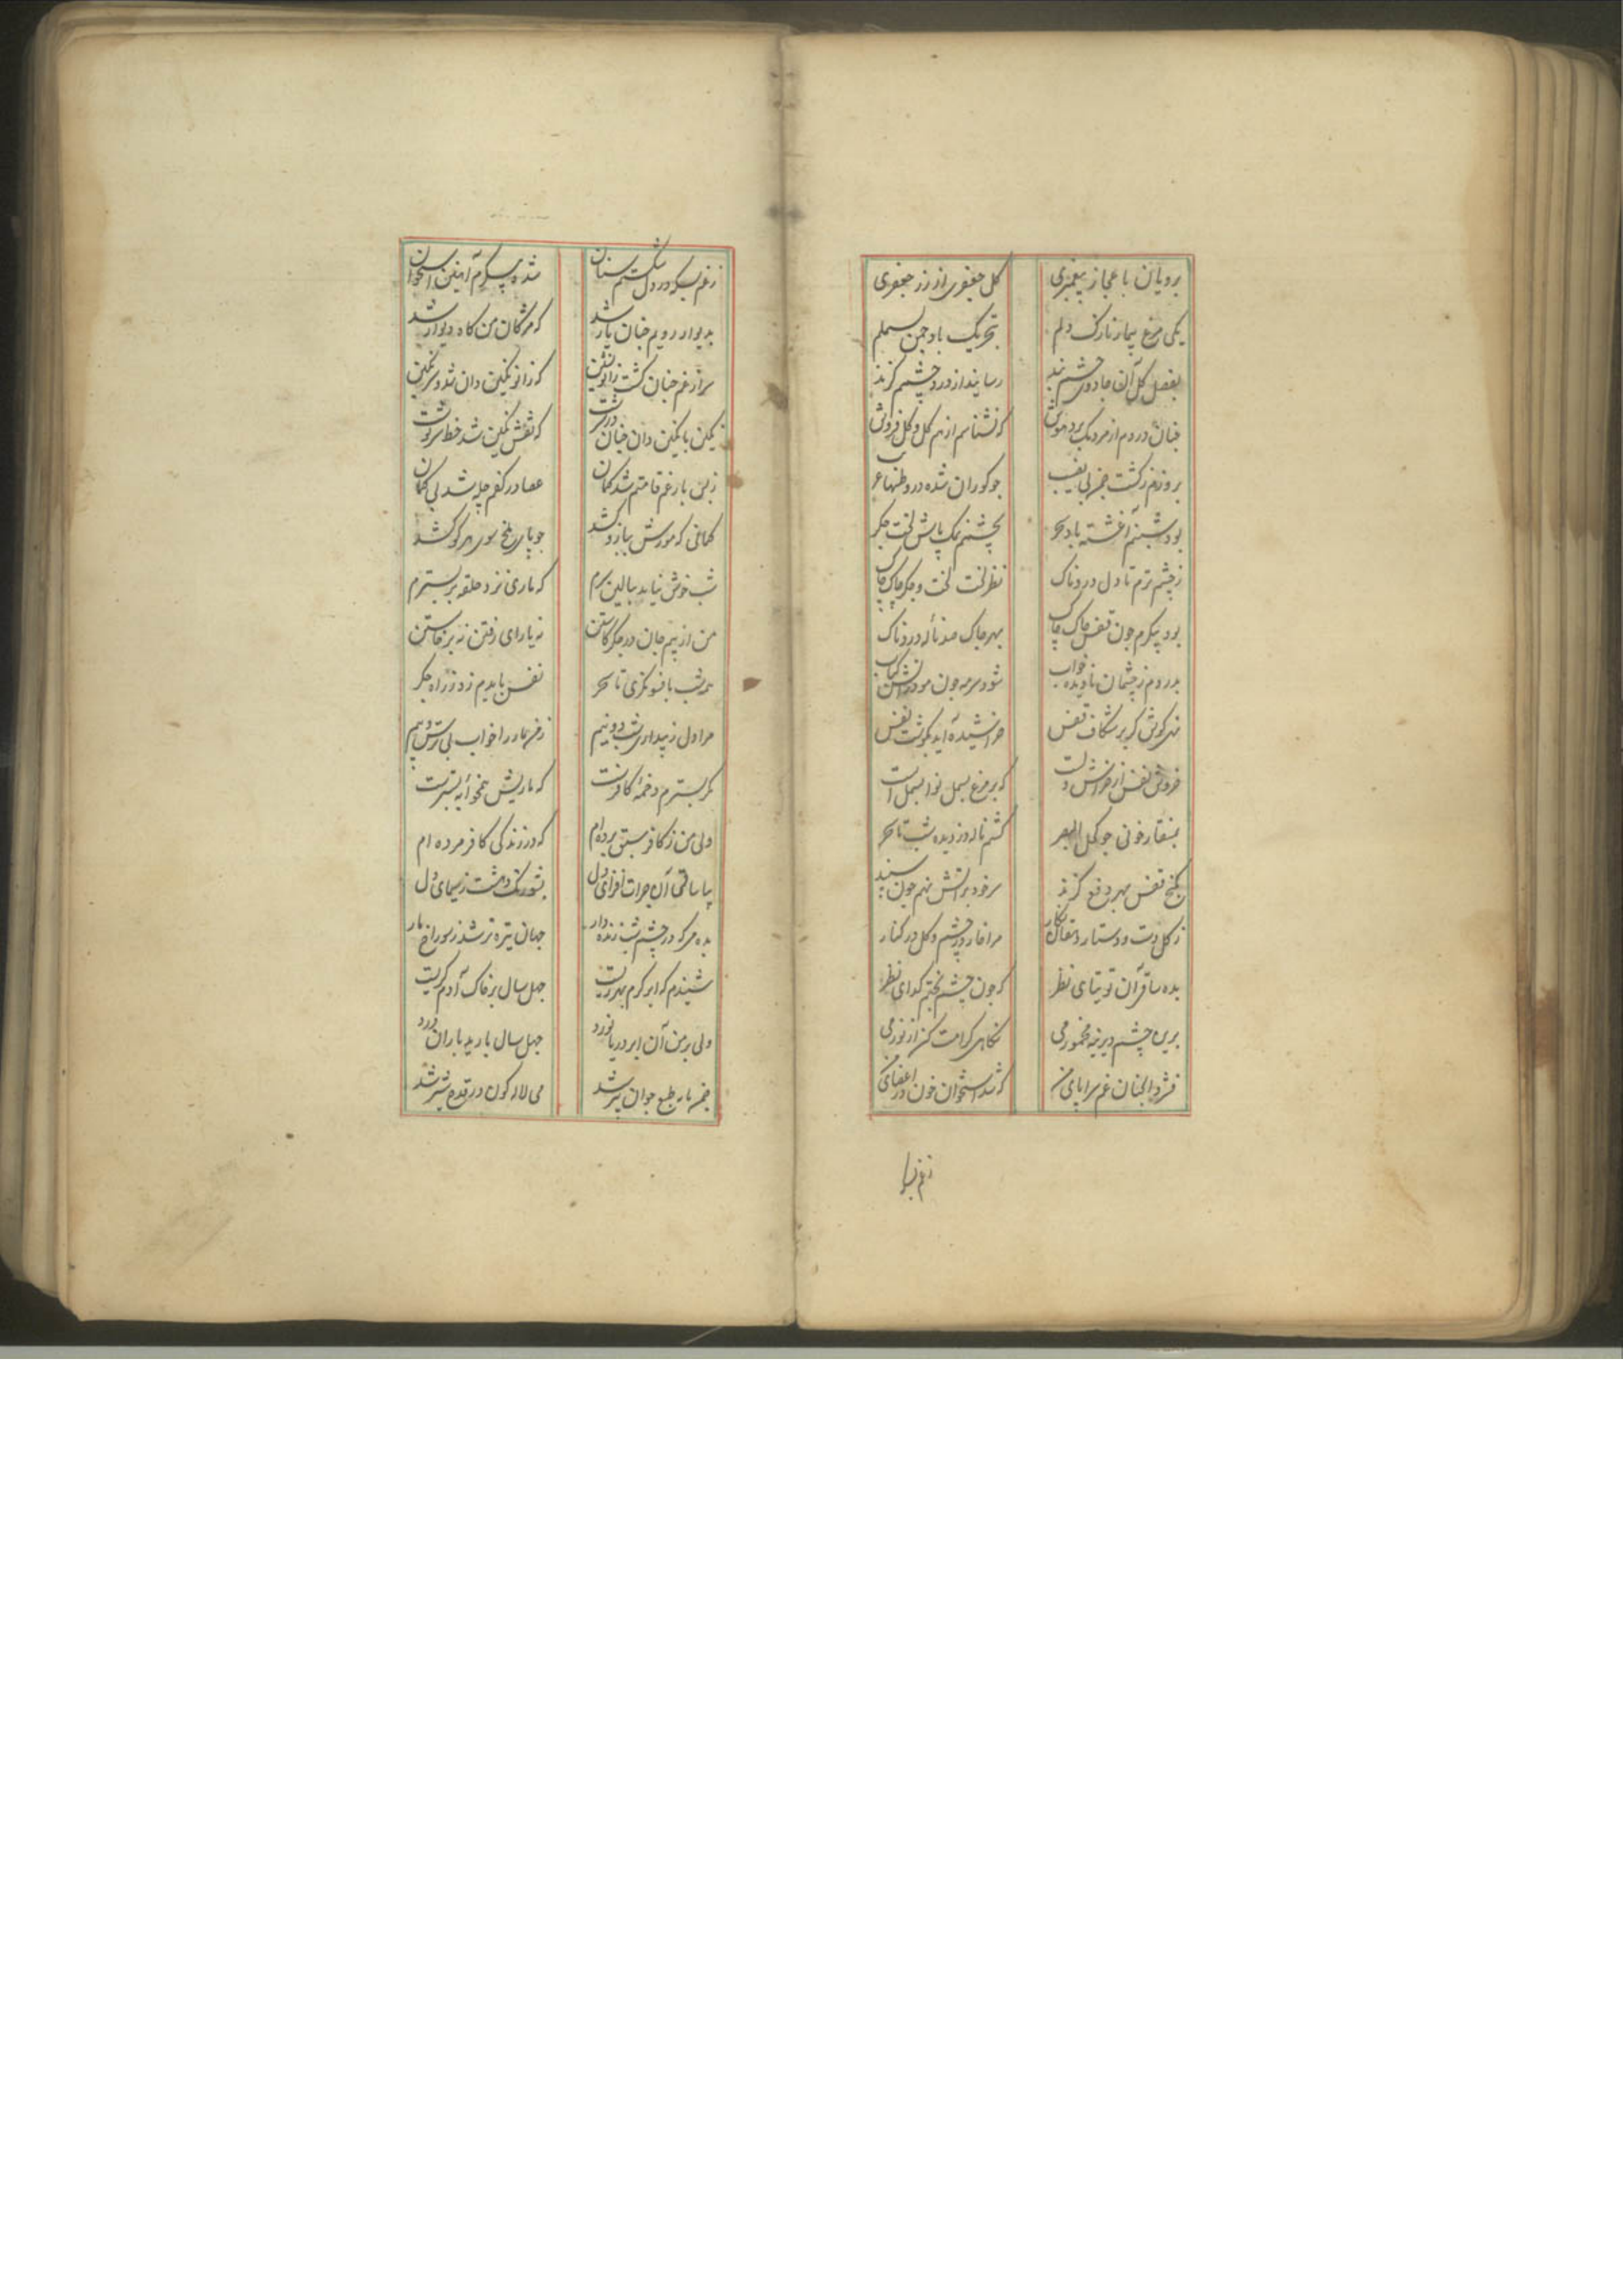 برویان باعجاز پیغمبری گل جعفری از زر جعفری
یکی مرغ بیمار نازک دلم تحریک باد چمن بسملم
بفصل گل آن جادوی چشم بند رسانید از درد چشمم گزند
چنان دردم از مردمک برد هوش که نشناسم از هم گل و گلفروش
بروزم گشت جز بی نصیب چو کوران شده در وطنها غریب
بود شبنم آغشته باد سحر بچشمم نمک پاش لخت جگر
ز چشم ترم تا دل دردناک نظر لخت لخت و جگر چاک چاک
بود پیکرم چون قفس چاک چاک بهر چاک صد ناله دردناک
بدردم ز چشمان نادیده خواب شود سرمه چون مو در آتش کباب
نهی گوش گر بر شکاف قفس خراشیده آید بگوشت نفس
خروش نفس از خراش دلست که بر مرغ بسمل نوا بسمل است
بمنقار خونی چو گل البصر کشم ناله دزدیده شب تا سحر
بکنج قفس بهر دفع گزند سر خود بر آتش نهم چون سپند
ز گل دست و دستار مرا خار در چشم و گل در کنار
بده ساقی آن توتیای نظر که چون چشم بختم گدای نظر
برین چشم دیرینه مخمور می نگاهی کرامت کن از نور می
فشرد آنچنان غم سراپای من که شد استخوان خون در اعضای من
ز غم بس که
ز غم بس که در دل شکستم سنان شده پیکرم آهنین استخوان
بدیوار رویم چنان یار شد که مژگان من کاه دیوار شد
سرم از غم چنان گشت زانو نشین که زانو نگین دان شد و سر نگین
نگین با نگین دان چنان شد درشت که نقش نگین شد خط سرنوشت
ز بس بار غم قامتم شد کمان عصا در کفم چله شد بی کمان
کمانی که مورش ببازو کشد چو پای ملخ سوی هر کو کشد
شب خوش نیاید ببالین سرم که ماری نزد حلقه بر بسترم
من از بیم جان در جگر کاستن نه یارای رفتن نه برخاستن
همه شب بافسونگری تا سحر نفس بایدم زد ز راه جگر
مرا دل ز بیداری شب دو نیم ز من مار را خواب بی ترس و بیم
مگر بسترم دخمه کافرست که ماریش همخوابه بسترست
ولی من ز کافر سبق برده‌ام که در زندگی کافر مرده ام
بیا ساقی آن جرات افزای دل بشو رنگ دهشت ز سیمای دل
بده می که در چشم شب زنده دار جهان تیره تر شد ز سوراخ مار
شنیدم که ابر کرم بهر زیست چهل سال بر خاک آدم گریست
ولی بر من آن ابر دریا نورد چهل سال بارید باران درد
خم باده طبع جوان پیر شد می لاله گون در قدح شیر شد